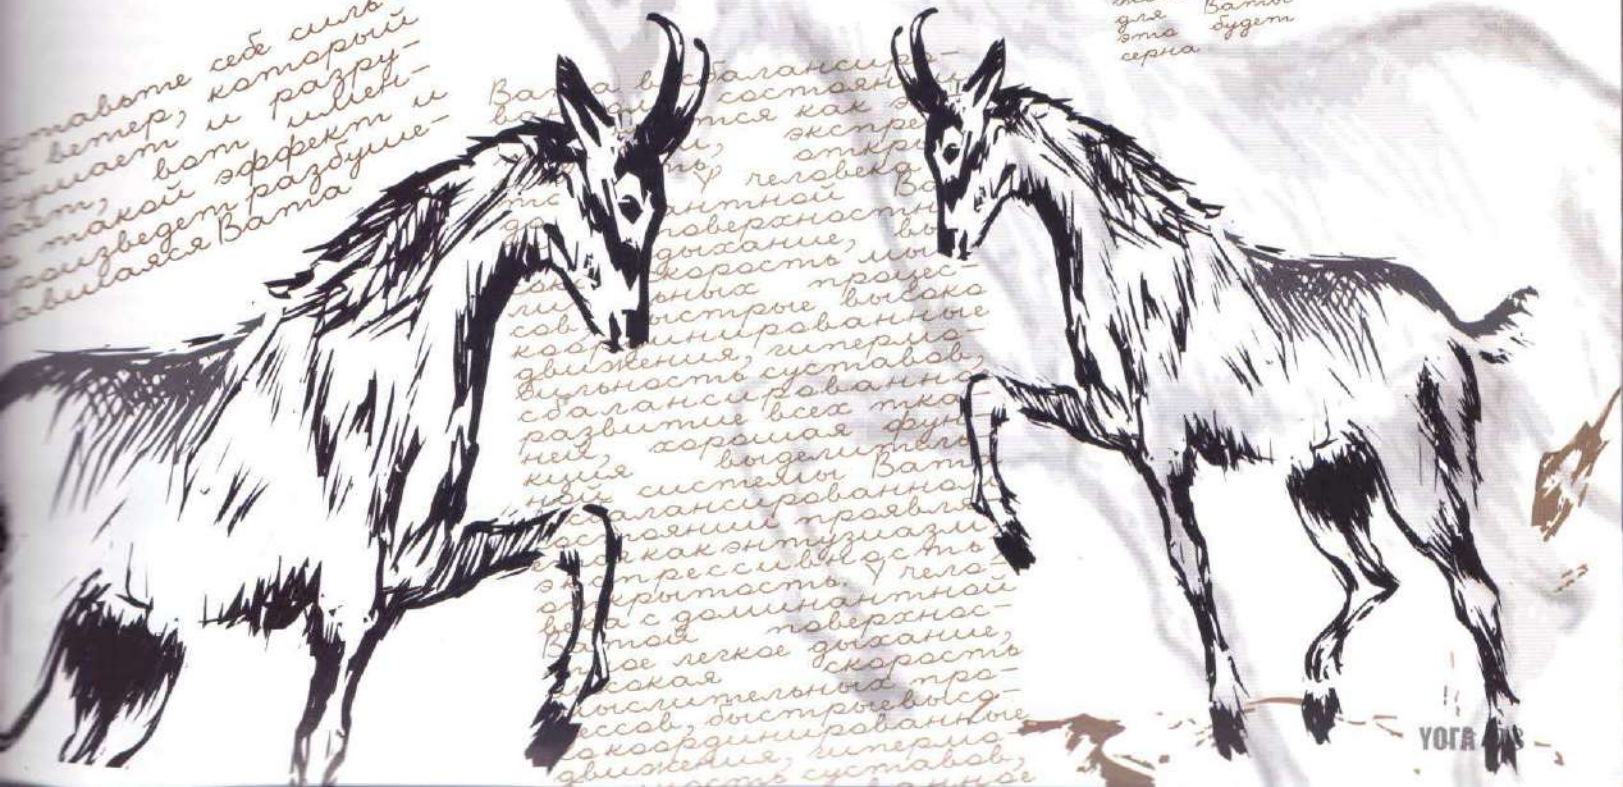 ставьте себе силь
й ветер, который
сушает и разру-
ает, вот имен-
о такой эффект и
оизведет разбуше-
авшаяся Вата
для Ваты
это будет
серна
Вата в сбалансиро-
состоянии
тся как э
экспре
ть, откры
У человека
антной Ва
поверхностн
дыхание, вы
корость мы
льных процес-
сов, быстрые высоко
координированные
движения, гипермо-
бильность суставов,
сбалансированно
развитие всех тка-
ней, хорошая фун
кция выделитель
ной системы Вата
сбалансированном
состоянии проявля
как энтузиазм
экспрессивность
открытость. У чело-
века с доминантной
Ватой поверхнос-
тное легкое дыхание,
высокая скорость
мыслительных про-
цессов, быстрые высо-
кокоординированные
движения, гипермо-
ность суставов,
YOГА